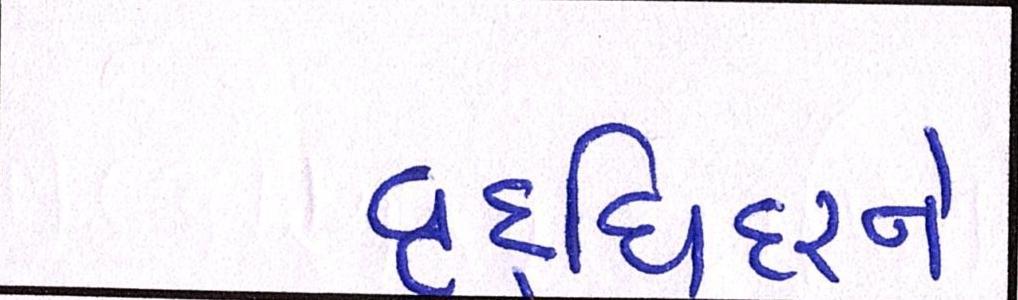 વૃદ્ધિદરને